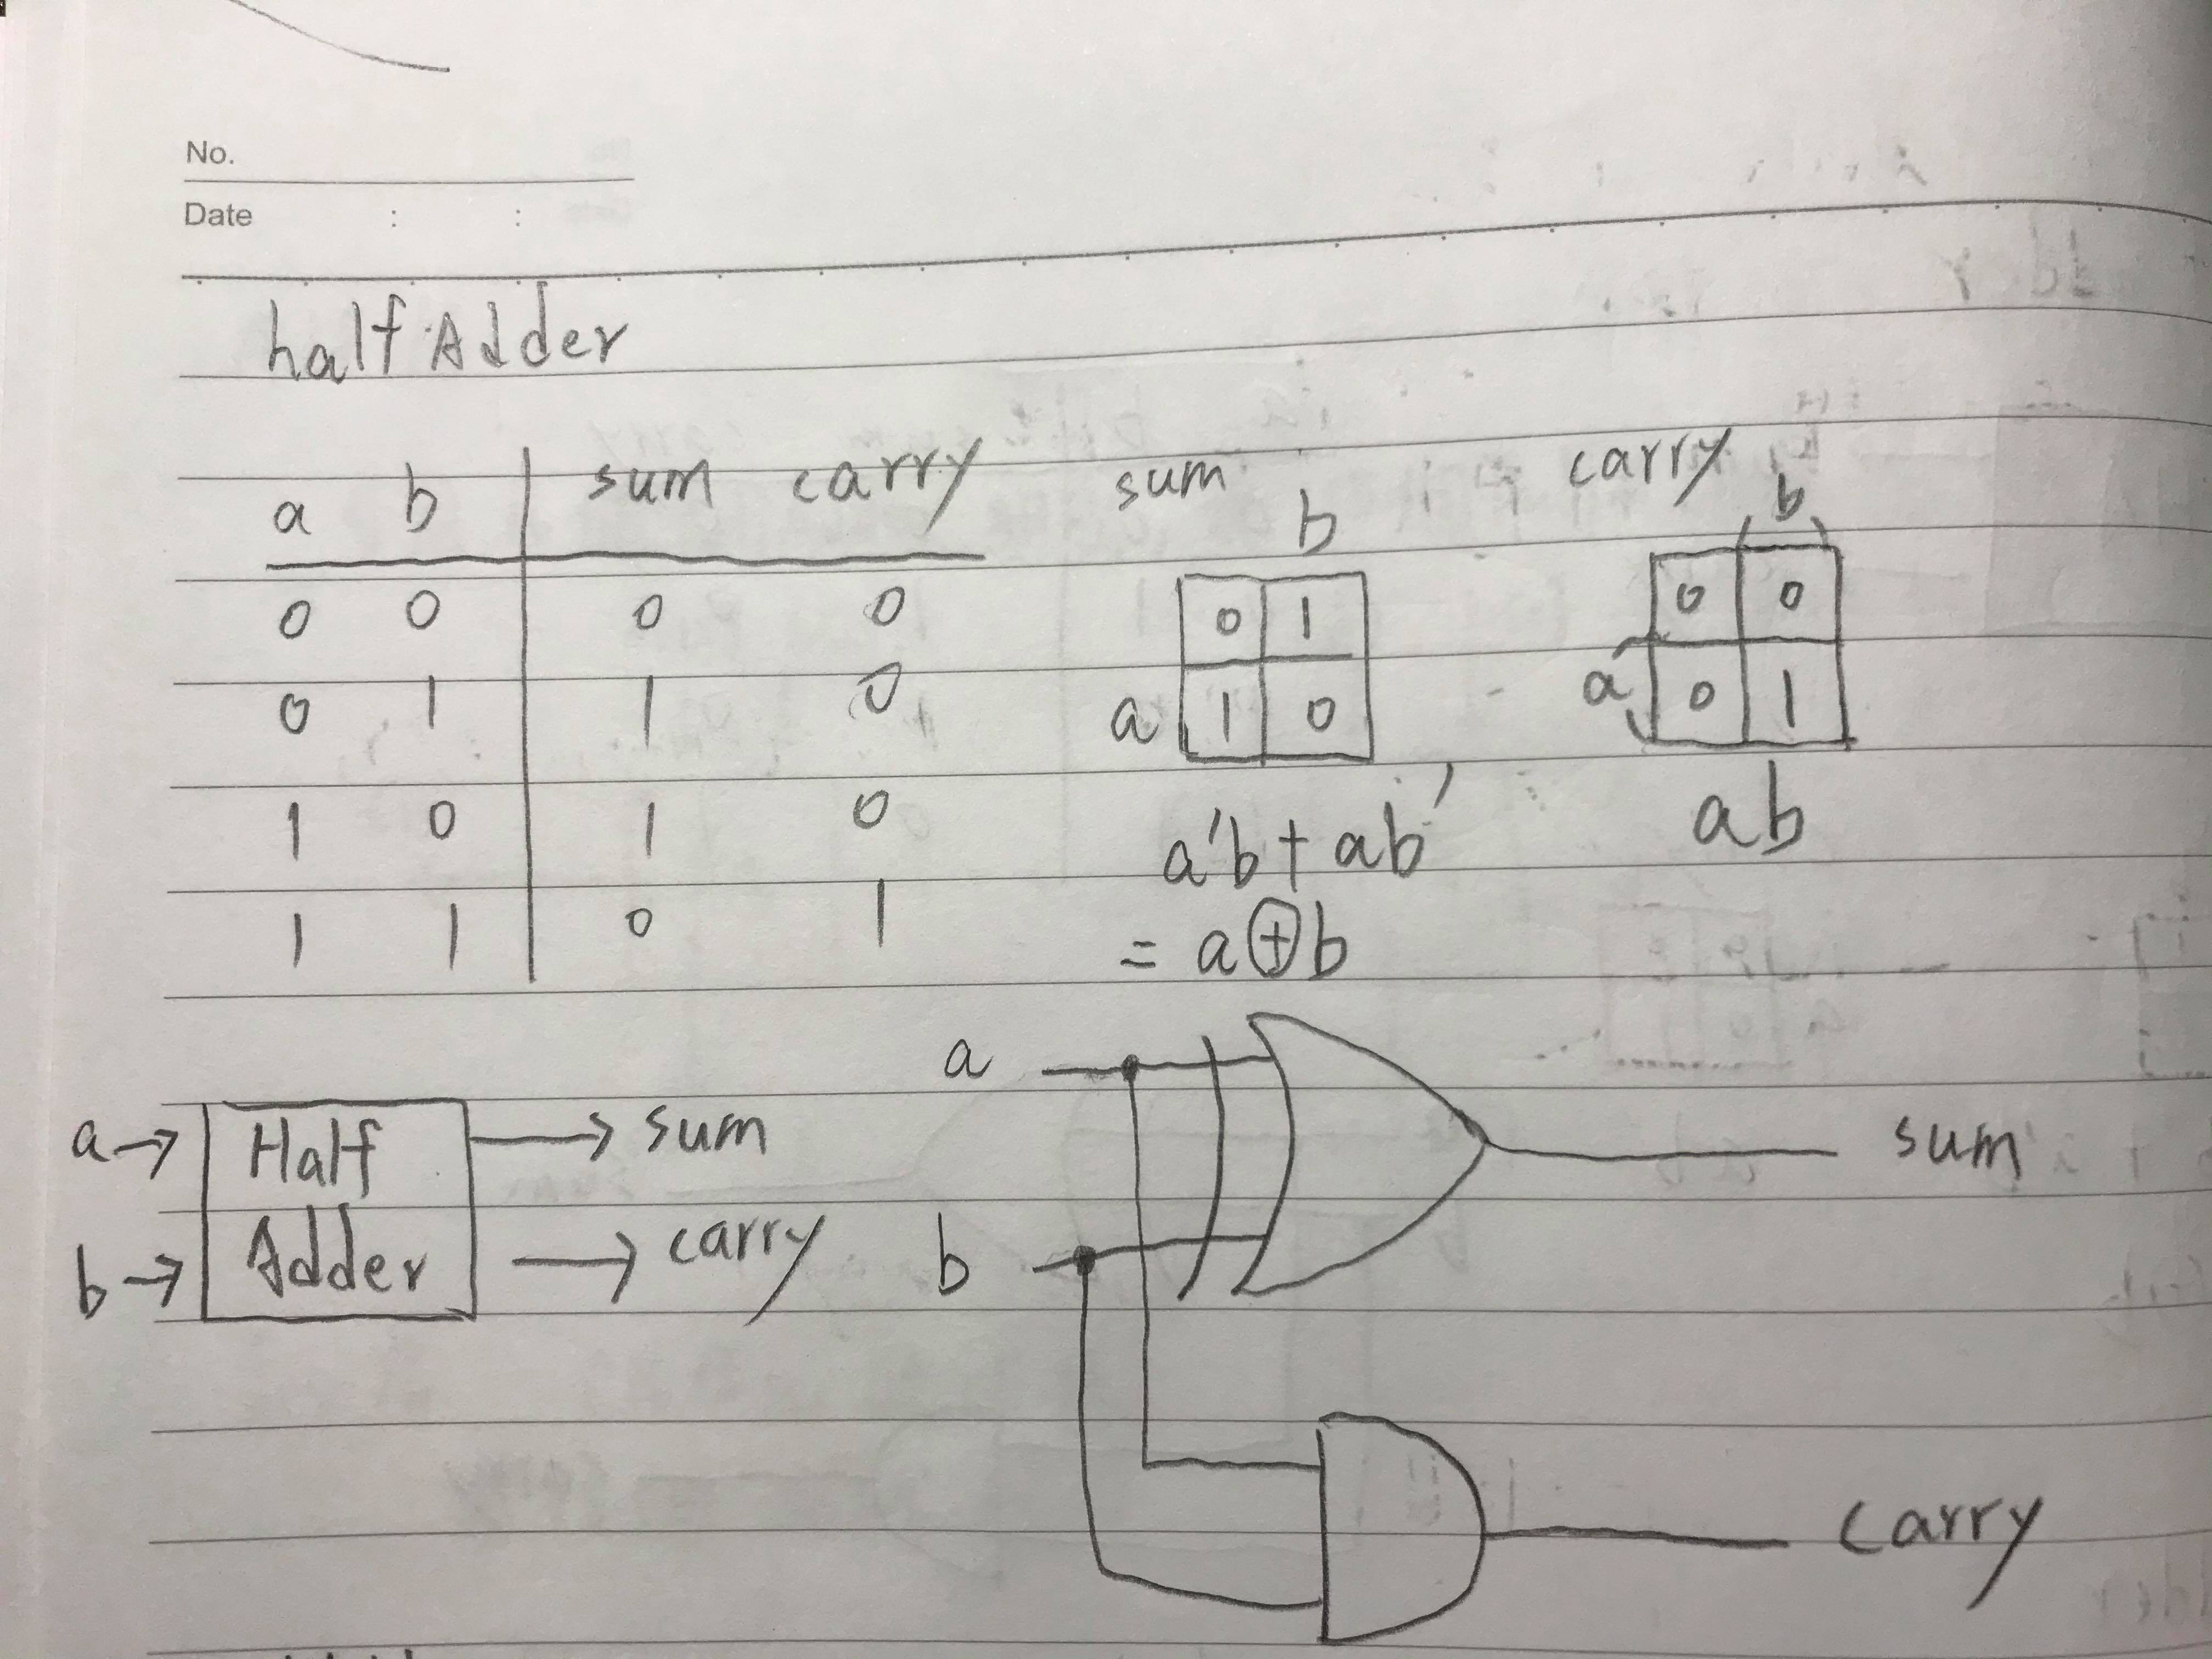 No.
Date : :
half Adder
a b sum carry
0 0 0 0
0 1 1 0
1 0 1 0
1 1 0 1
sum
b
0 1
a 1 0
a'b + ab'
= a⊕b
carry
b
0 0
a 0 1
ab
a → Half → sum
b → Adder → carry
a
b
sum
carry